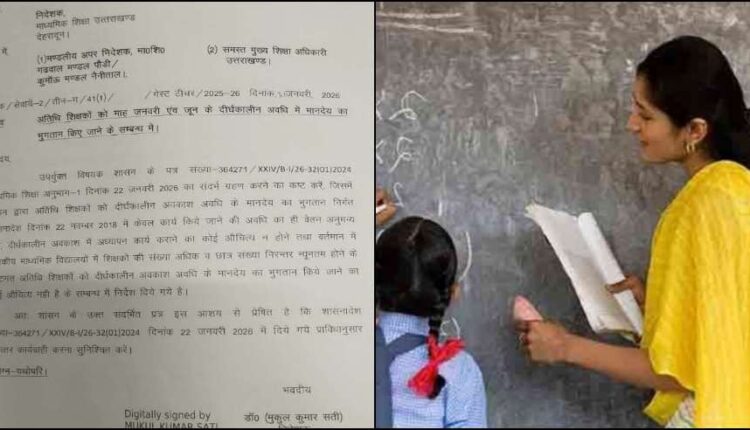 निदेशक,
माध्यमिक शिक्षा उत्तराखण्ड
देहरादून।
में,
(1)मण्डलीय अपर निदेशक, मा0शि0 (2) समस्त मुख्य शिक्षा अधिकारी
गढवाल मण्डल पौडी/ उत्तराखण्ड।
कुमाँऊ मण्डल नैनीताल।
/सेवायें-2/तीन-ग/41(1)/ /गेस्ट टीचर/2025-26 दिनांक, जनवरी, 2026
अतिथि शिक्षकों को माह जनवरी एंव जून के दिर्घकालीन अवधि में मानदेय का
भुगतान किए जाने के सम्बन्ध में।
उपर्युक्त विषयक शासन के पत्र संख्या-364271/XXIV/B-I/26-32(01)2024
अनुभाग-1 दिनांक 22 जनवरी 2026 का संदर्भ ग्रहण करने का कष्ट करें, जिसमें
द्वारा अतिथि शिक्षकों को दीर्घकालीन अवकाश अवधि के मानदेय का भुगतान निर्गत
दिनांक 22 नवम्बर 2018 में केवल कार्य किये जाने की अवधि का ही वेतन अनुमन्य
दीर्घकालीन अवकाश में अध्यापन कार्य कराने का कोई औचित्य न होने तथा वर्तमान में
माध्यमिक विद्यालयों में शिक्षकों की संख्या अधिक व छात्र संख्या निरन्तर न्यूनतम होने के
अतिथि शिक्षकों को दीर्घकालीन अवकाश अवधि के मानदेय का भुगतान किये जाने का
औचित्य नही है के सम्बन्ध में निर्देश दिये गये है।
अतः शासन के उक्त संदर्भित पत्र इस आशय से प्रेषित है कि शासनादेश
364271/XXIV/B-I/26-32(01)2024 दिनांक 22 जनवरी 2026 में दिये गये प्राविधानुसार
कार्यवाही करना सुनिश्चित करें।
-यथोपरि।
भवदीय
Digitally signed by डॉ0 (मुकुल कुमार सती)
MUKUL KUMAR SATI